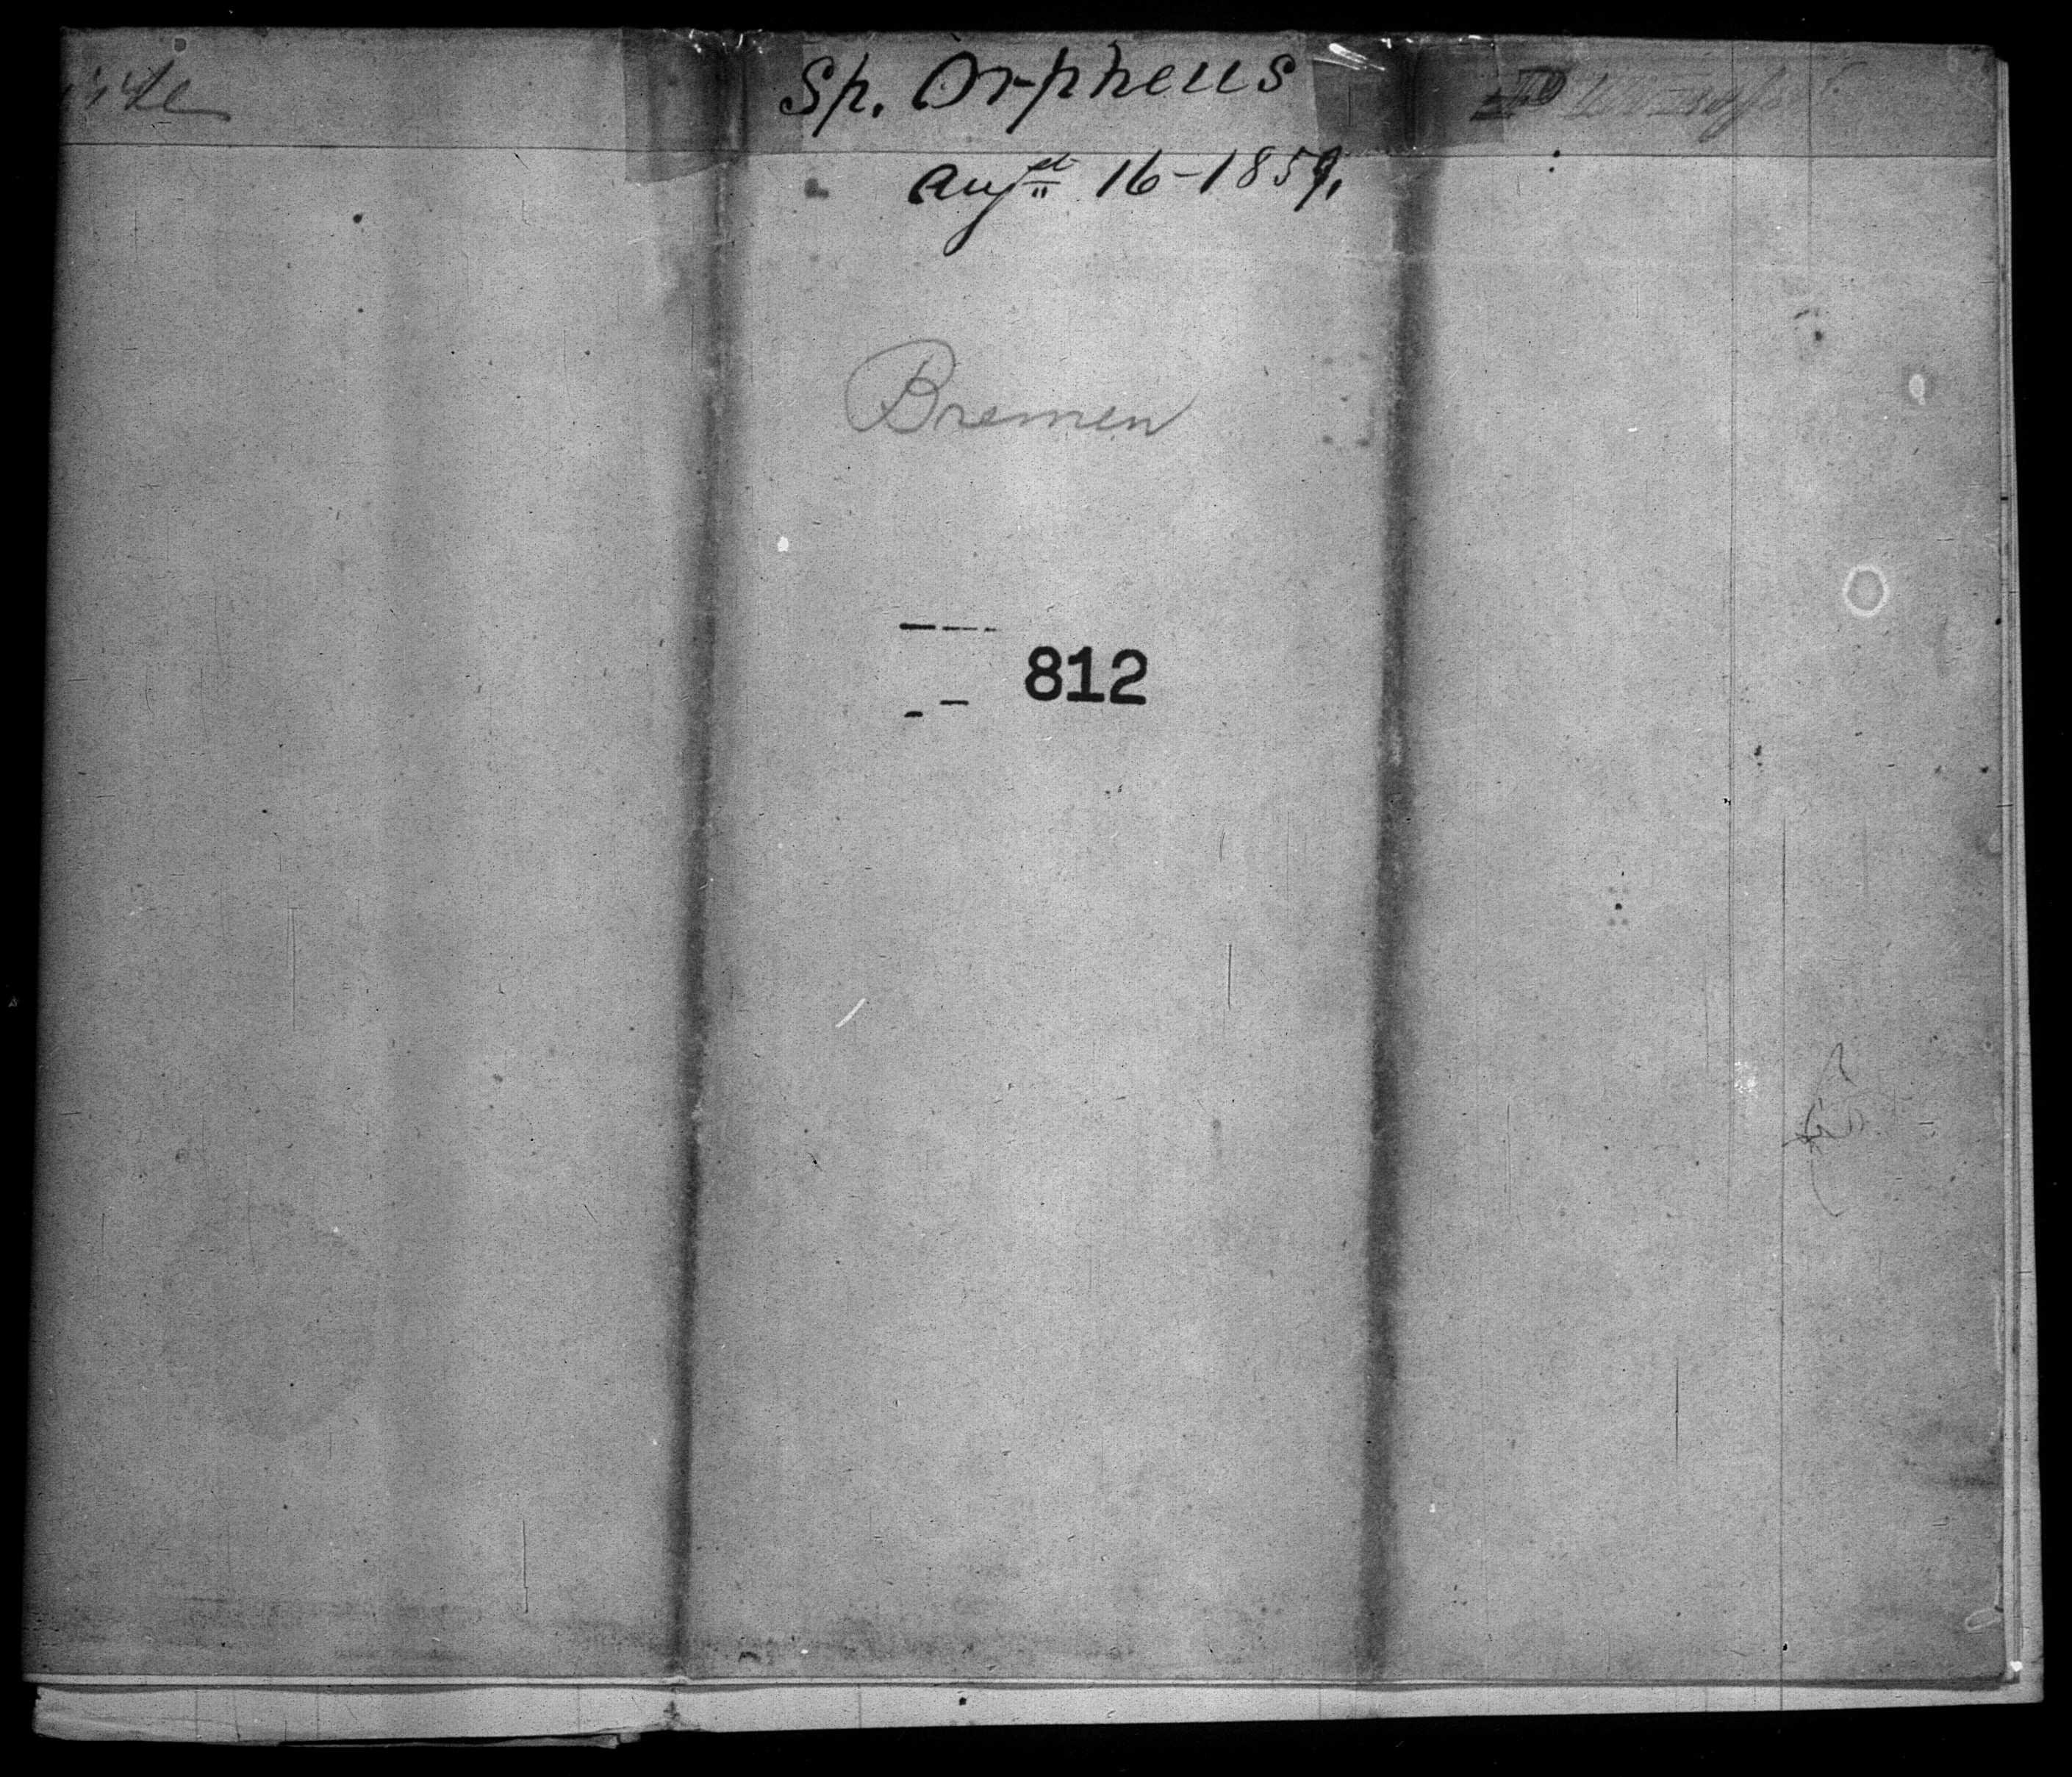 Sp. Orpheus
Augst 16-1859.
Bremen
812